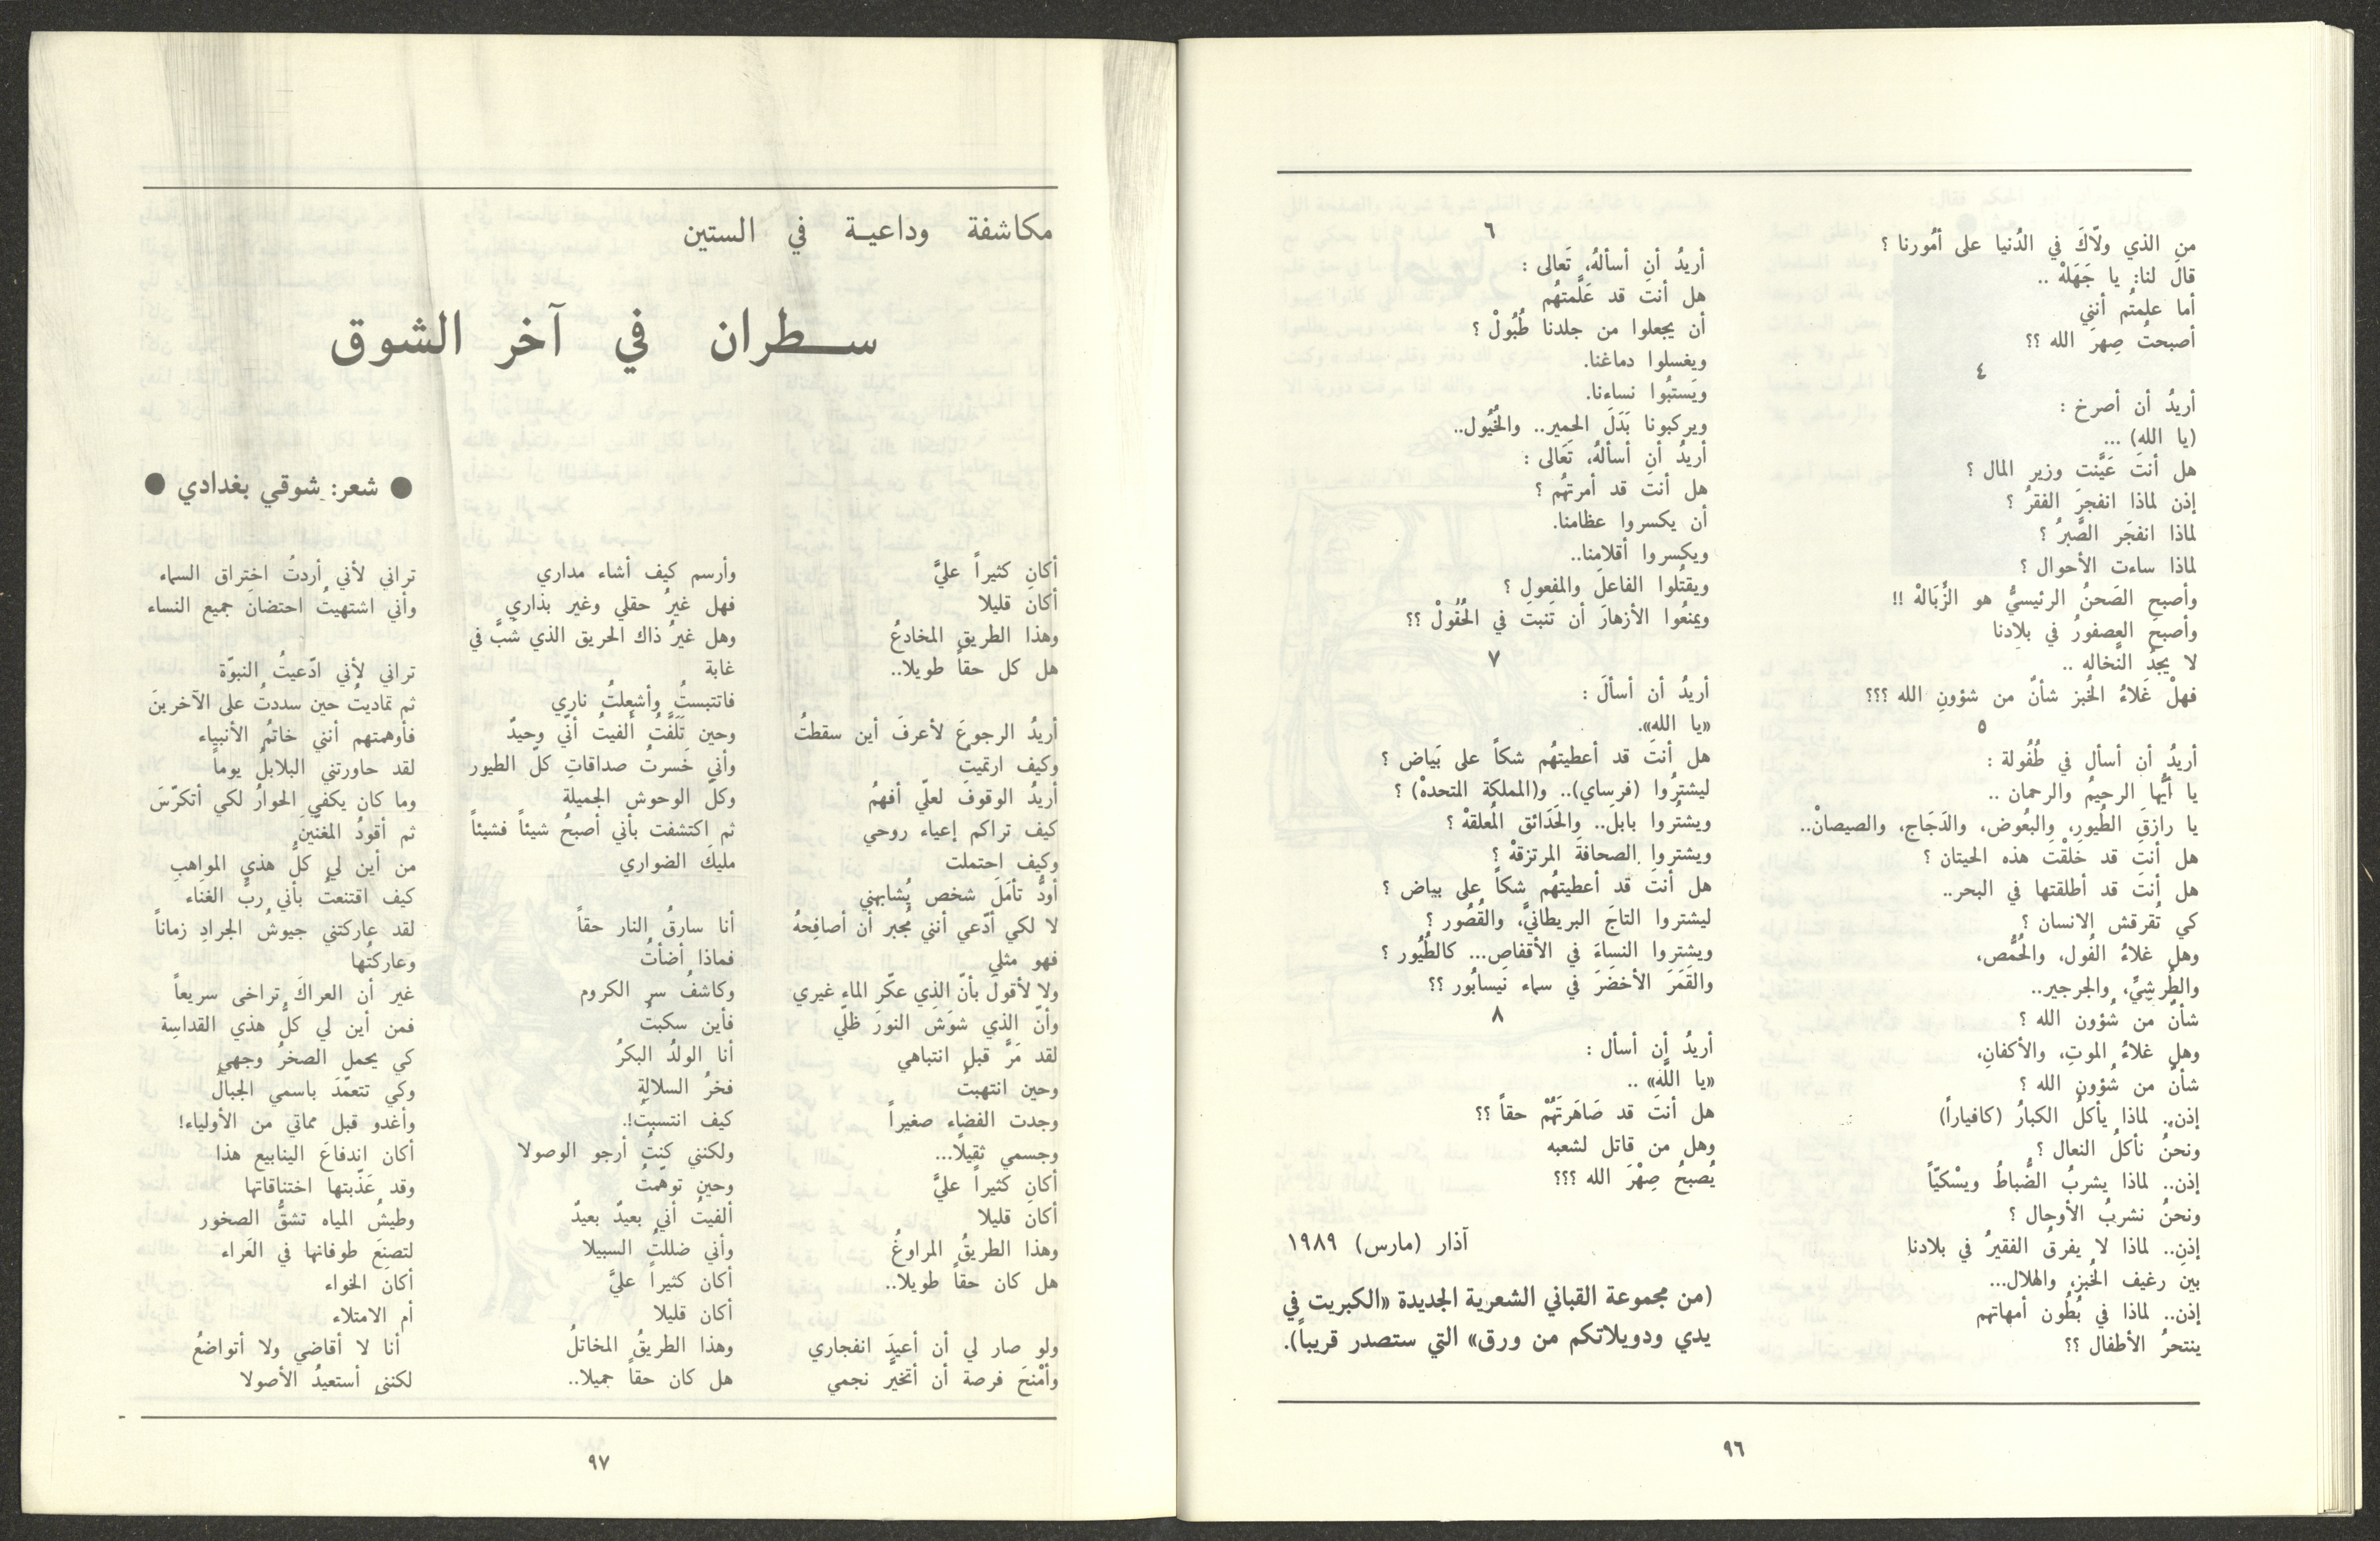 من الذي ولّاكَ في الدُنيا على أمُورنا ؟
قالَ لنا: يا جَهَلهْ ..
أما علِمتُم أنني
أصبحتُ صِهرَ الله ؟؟
٤
أريدُ أن أصرخ :
(يا الله) ...
هل أنتَ عَيَّنت وزير المال ؟
إذن لماذا انفجرَ الفقرُ ؟
لماذا انفجَر الصَّبرُ ؟
لماذا ساءت الأحوال ؟
وأصبح الصَحنُ الرئيسيُّ هو الزُّبَالهْ !!
وأصبحَ العصفورُ في بلادِنا
لا يجدُ النَّخاله ..
فهلْ غَلاءُ الخُبز شأنٌ من شؤونِ الله ؟؟؟
٥
أريدُ أن أسأل في طُفُولة :
يا أيُّها الرحيمُ والرحمان ..
يا رازقَ الطُيورِ، والبعُوض، والدَجَاج، والصيصانْ..
هل أنتَ قد خَلقْتَ هذه الحيتان ؟
هل أنتَ قد أطلقتها في البحر..
كي تُقرقش الانسان ؟
وهل غلاءُ الفُول، والحُمُّص،
والطُرشِيِّ، والجرجير..
شأنٌ من شُؤون الله ؟
وهل غلاءُ الموتِ، والأكفانِ،
شأنٌ من شُؤونِ الله ؟
إذن.. لماذا يأكلُ الكبارُ (كافياراً)
ونحنُ نأكلُ النعال ؟
إذن.. لماذا يشربُ الضُّباطُ ويسْكيّاً
ونحنُ نشربُ الأوحال ؟
إذن.. لماذا لا يفرقُ الفقيرُ في بلادنا
بين رغيف الخُبزِ، والهلال...
إذن.. لماذا في بُطُون أمهاتهم
ينتحرُ الأطفال ؟؟
٦
أريدُ أن أسألهُ، تَعالى :
هل أنتَ قد عَلَّمتهُم
أن يجعلوا من جلدنا طُبُولْ ؟
ويغسلوا دماغنا.
ويَستبُوا نساءنا.
ويركبونا بَدَلَ الحمير.. والخُيُول..
أريدُ أن أسألهُ، تَعَالى :
هل أنتَ قد أمرتهُم ؟
أن يكسروا عظامنا.
ويكسروا أقلامِنا..
ويقتُلوا الفاعلَ والمفعول ؟
ويمنعُوا الأزهارَ أن تَنبتَ في الحُقُولْ ؟؟
٧
أريدُ أن أسألَ :
«يا الله».
هل أنتَ قد أعطيتهُم شكاً على بَياض ؟
ليشترُوا (فرساي).. و(المملكة المتحدهْ) ؟
ويشترُوا بابلَ.. والحَدَائق المُعلقهْ ؟
ويشتروا الصحافةَ المرتزقهْ ؟
هل أنتَ قد أعطيتهُم شكاً على بياض ؟
ليشتروا التاجَ البريطانيَّ، والقُصُور ؟
ويشتروا النساءَ في الأقفاصِ... كالطُيُور ؟
والقَمَرَ الأخضَرَ في سماء نَيسابُور ؟؟
٨
أريدُ أن أسأل :
«يا اللَّه» ..
هل أنتَ قد صَاهَرتَهُمْ حقاً ؟؟
وهل من قاتل لشعبه
يُصبحُ صِهْرَ الله ؟؟؟
آذار (مارس) ١٩٨٩
(من مجموعة القباني الشعرية الجديدة «الكبريت في
يدي ودويلاتكم من ورق» التي ستصدر قريباً).
٩٦
مكاشفة وداعيـة في الستين
سـطران في آخر الشوق
● شعر: شوقي بغدادي ●
أكان كثيراً عليَّ
أكانَ قليلا
وهذا الطريق المخادعُ
هل كل حقاً طويلا..
أريدُ الرجوعَ لأعرفَ أين سقطتُ
وكيف ارتميتُ
أريدُ الوقوفَ لعلّي أفهمُ
كيف تراكم إعياء روحي
وكيف احتملت
أودُّ تأمّلَ شخص يُشابهني
لا لكي أدّعي أنني مُجبر أن أصافِحهُ
فهو مثلي
ولا لأقولَ بأنّ الذي عكّر الماء غيري
وأنّ الذي شوَشَ النورَ ظلّي
لقد مَرَّ قبل انتباهي
وحين انتهبتُ
وجدت الفضاء صغيراً
وجسمي ثقيلًا...
أكان كثيراً عليَّ
أكانَ قليلا
وهذا الطريقُ المراوغُ
هل كان حقاً طويلا..
ولو صار لي أن أعيدَ انفجاري
وأمْنحَ فرصة أن أتخيَّر نجمي
وأرسم كيف أشاء مداري
فهل غيرُ حقلي وغير بذاري
وهل غيرُ ذاك الحريق الذي شَبَّ في
غابة
فاتتبستُ وأشعلتُ ناري
وحين تَلَفَّتُّ ألفيتُ أنّي وحيدٌ
وأني خَسرتُ صداقاتِ كلّ الطيور
وكلّ الوحوش الجميلة
ثم اكتشفت بأني أصبحُ شيئاً فشيئاً
مليكَ الضواري
أنا سارقُ النار حقاً
فماذا أضأتُ
وكاشفُ سر الكروم
فأين سكبتُ
أنا الولدُ البكرُ
فخرُ السلالةِ
كيف انتسبتُ!.
ولكنني كنتُ أرجو الوصولا
وحين توهّمتُ
ألفيتُ أني بعيدٌ بعيدٌ
وأني ضللتُ السبيلا
أكان كثيراً عليَّ
أكان قليلا
وهذا الطريقُ المخاتلُ
هل كان حقاً جميلا..
تراني لأني أردتُ اختراق السماء
وأني اشتهيتُ احتضانَ جميع النساء
تراني لأني ادّعيتُ النبوّة
ثم تماديتُ حين سددتُ على الآخرينَ
فأوهمتهم أنني خاتمُ الأنبياء
لقد حاورتني البلابلُ يوماً
وما كان يكفي الحوارُ لكي أتكرّسَ
ثم أقودُ المغنّينَ
من أين لي كلُّ هذي المواهبِ
كيف اقتنعتُ بأني ربُّ الغناء
لقد عاركتني جيوشُ الجرادِ زماناً
وعاركتُها
غير أن العراكَ تراخى سريعاً
فمن أين لي كلُّ هذي القداسةِ
كي يحمل الصخرُ وجهي
وكي تتعمّدَ باسمي الجبالُ
وأغدو قبل مماتي من الأولياء!
أكان اندفاعَ الينابيع هذا
وقد عَذّبتها اختناقاتها
وطيشُ المياه تشقُّ الصخور
لتصنعَ طوفانها في العَراء
أكانَ الخواء
أم الامتلاء
أنا لا أقاضي ولا أتواضعُ
لكنني أستعيدُ الأصولا
٩٧